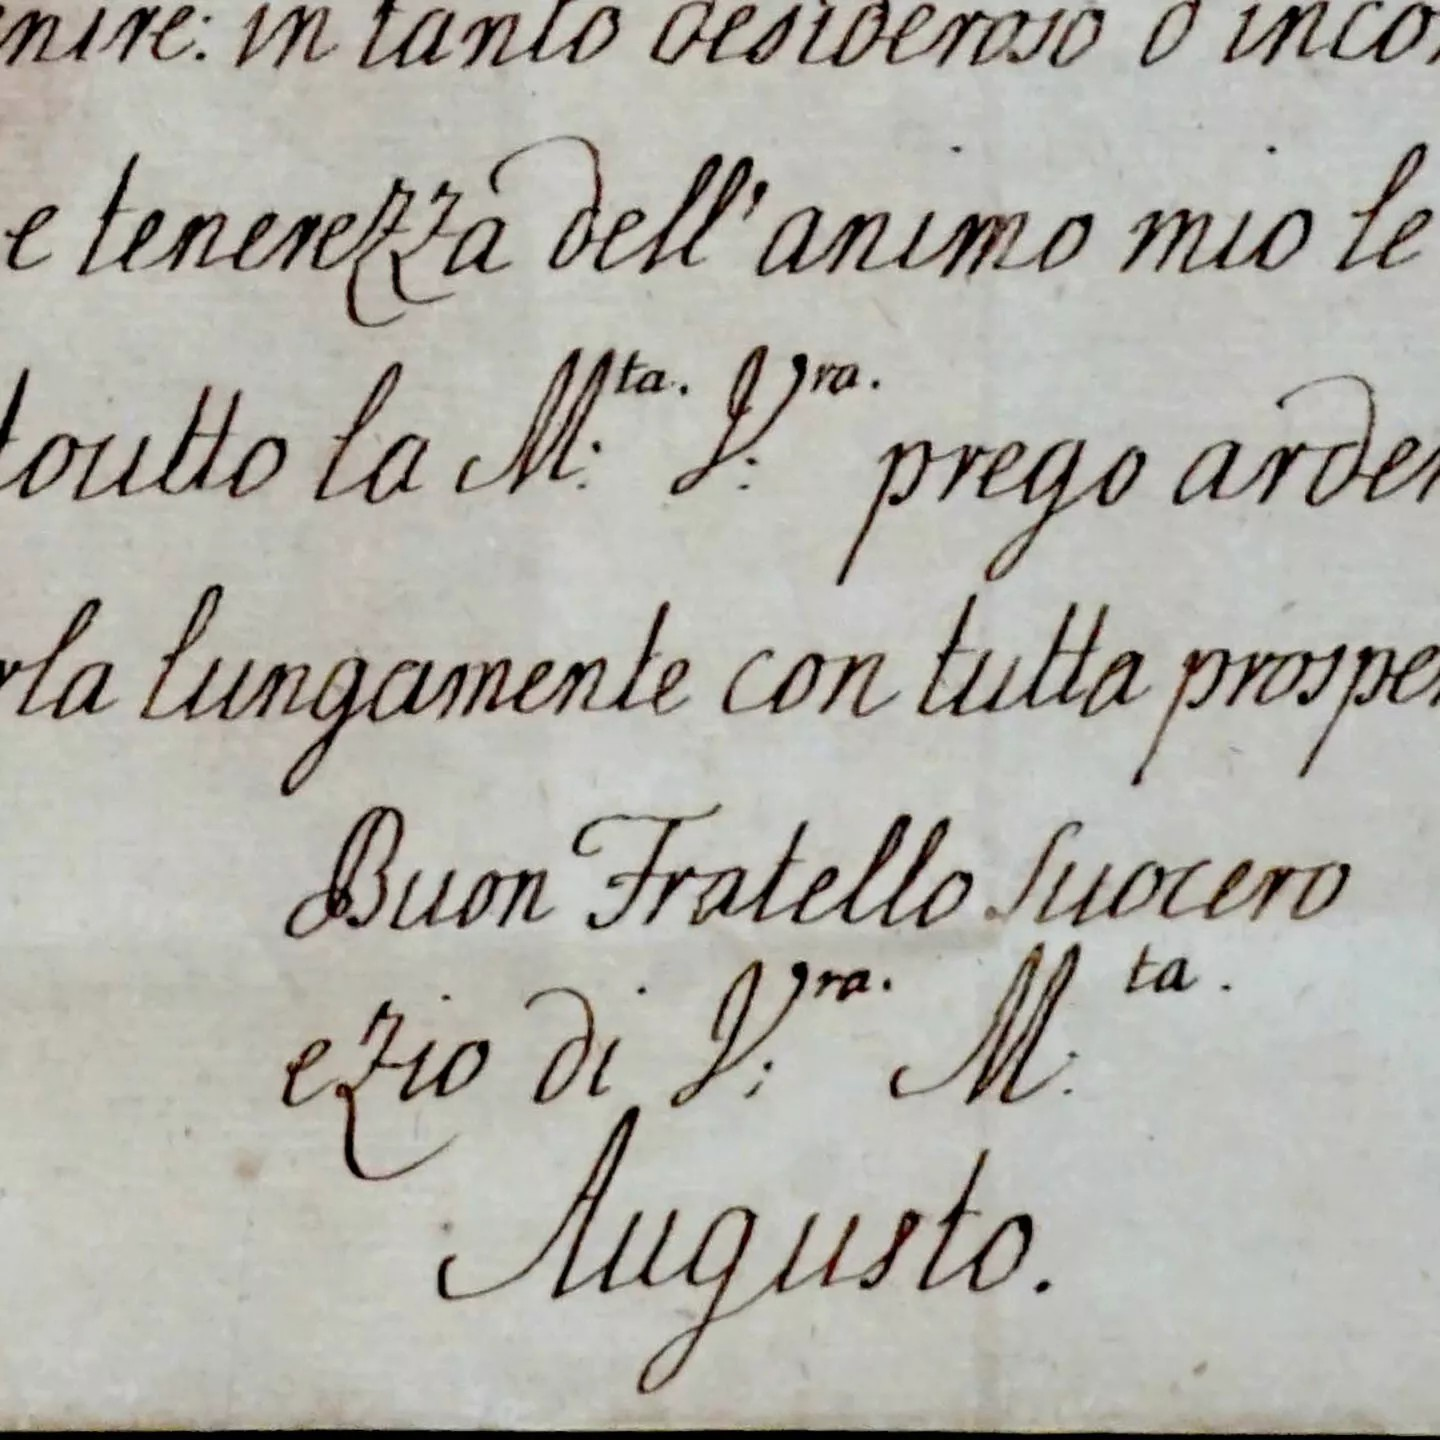 nire: in tanto desideroso d'incon
e tenerezza dell'animo mio le
toutto la M:ta. V:ra. prego arden
rla lungamente con tutta prosper
Buon Fratello Suocero
ezio di V:ra. M:ta.
Augusto.